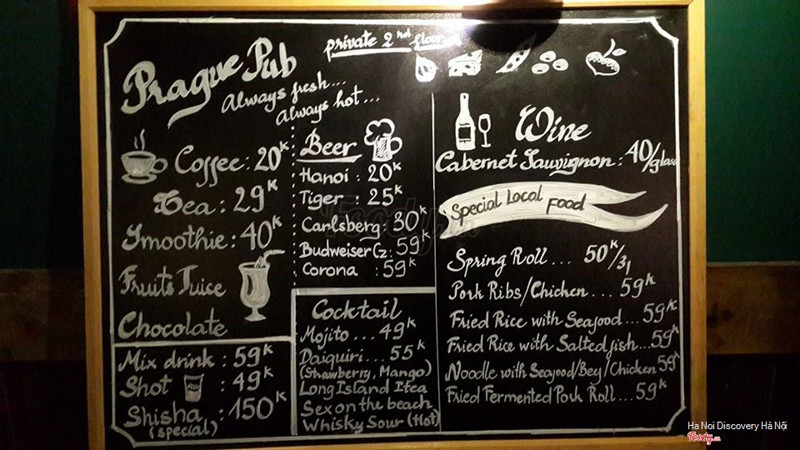 Prague Pub
private 2nd floor
Always fresh...
Always hot...
Coffee: 20K
Tea: 29K
Smoothie: 40K
Fruits Juice
Chocolate
Mix drink: 59K
Shot : 49K
Shisha : 150K
(special)
Beer
Hanoi : 20K
Tiger : 25K
Carlsberg: 30K
Budweiser Cz: 59K
Corona : 59K
Cocktail
Mojito ... 49K
Daiquiri ... 55K
(Strawberry, Mango)
Long Island Itea
Sex on the beach
Whisky Sour (Hot)
Wine
Cabernet Sauvignon: 40/glass
Special Local Food
Spring Roll ... 50K/3
Pork Ribs/Chicken ... 59K
Fried Rice with Seafood ... 59K
Fried Rice with Saltedfish ... 59K
Noodle with Seafood/Bey/Chicken 59K
Fried Fermented Pork Roll ... 59K
Ha Noi Discovery Hà Nội
Foody.vn